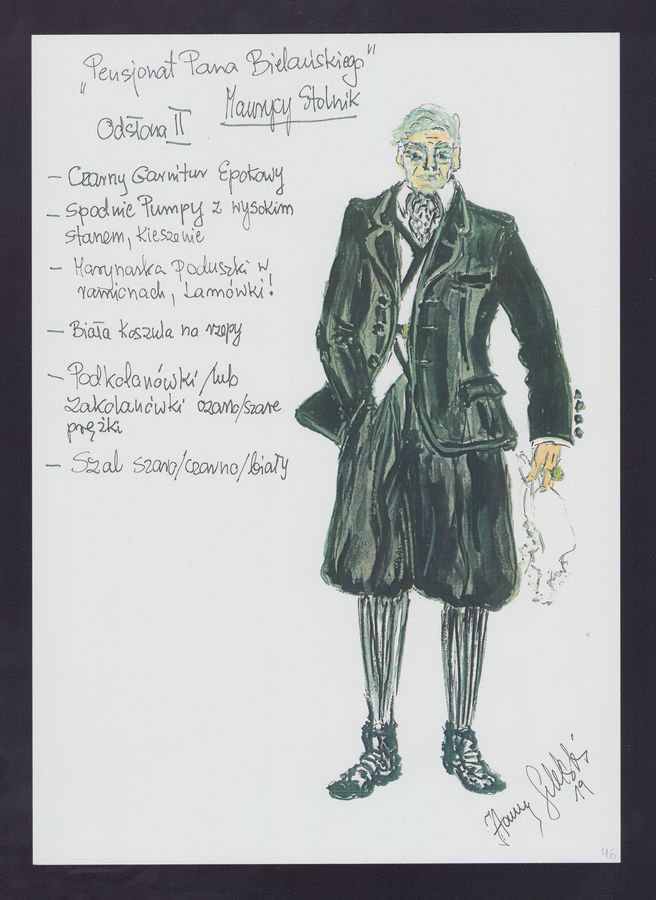 „Pensjonat Pana Bielańskiego"
Maurycy Stolnik
Odsłona II
– Czarny Garnitur Epokowy
– Spodnie Pumpy z wysokim
stanem, kieszenie
– Marynarka Poduszki w
ramionach, Lamówki!
– Biała Koszula na rzepy
– Podkolanówki/lub
Zakolanówki czarno/szare
prążki
– Szal szaro/czarno/biały
19
46